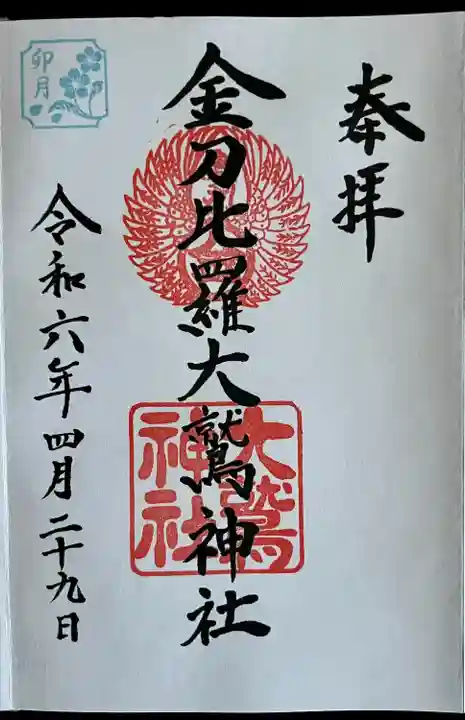 奉拝
金刀比羅大鷲神社
大鷲
神社
令和六年四月二十九日
卯月